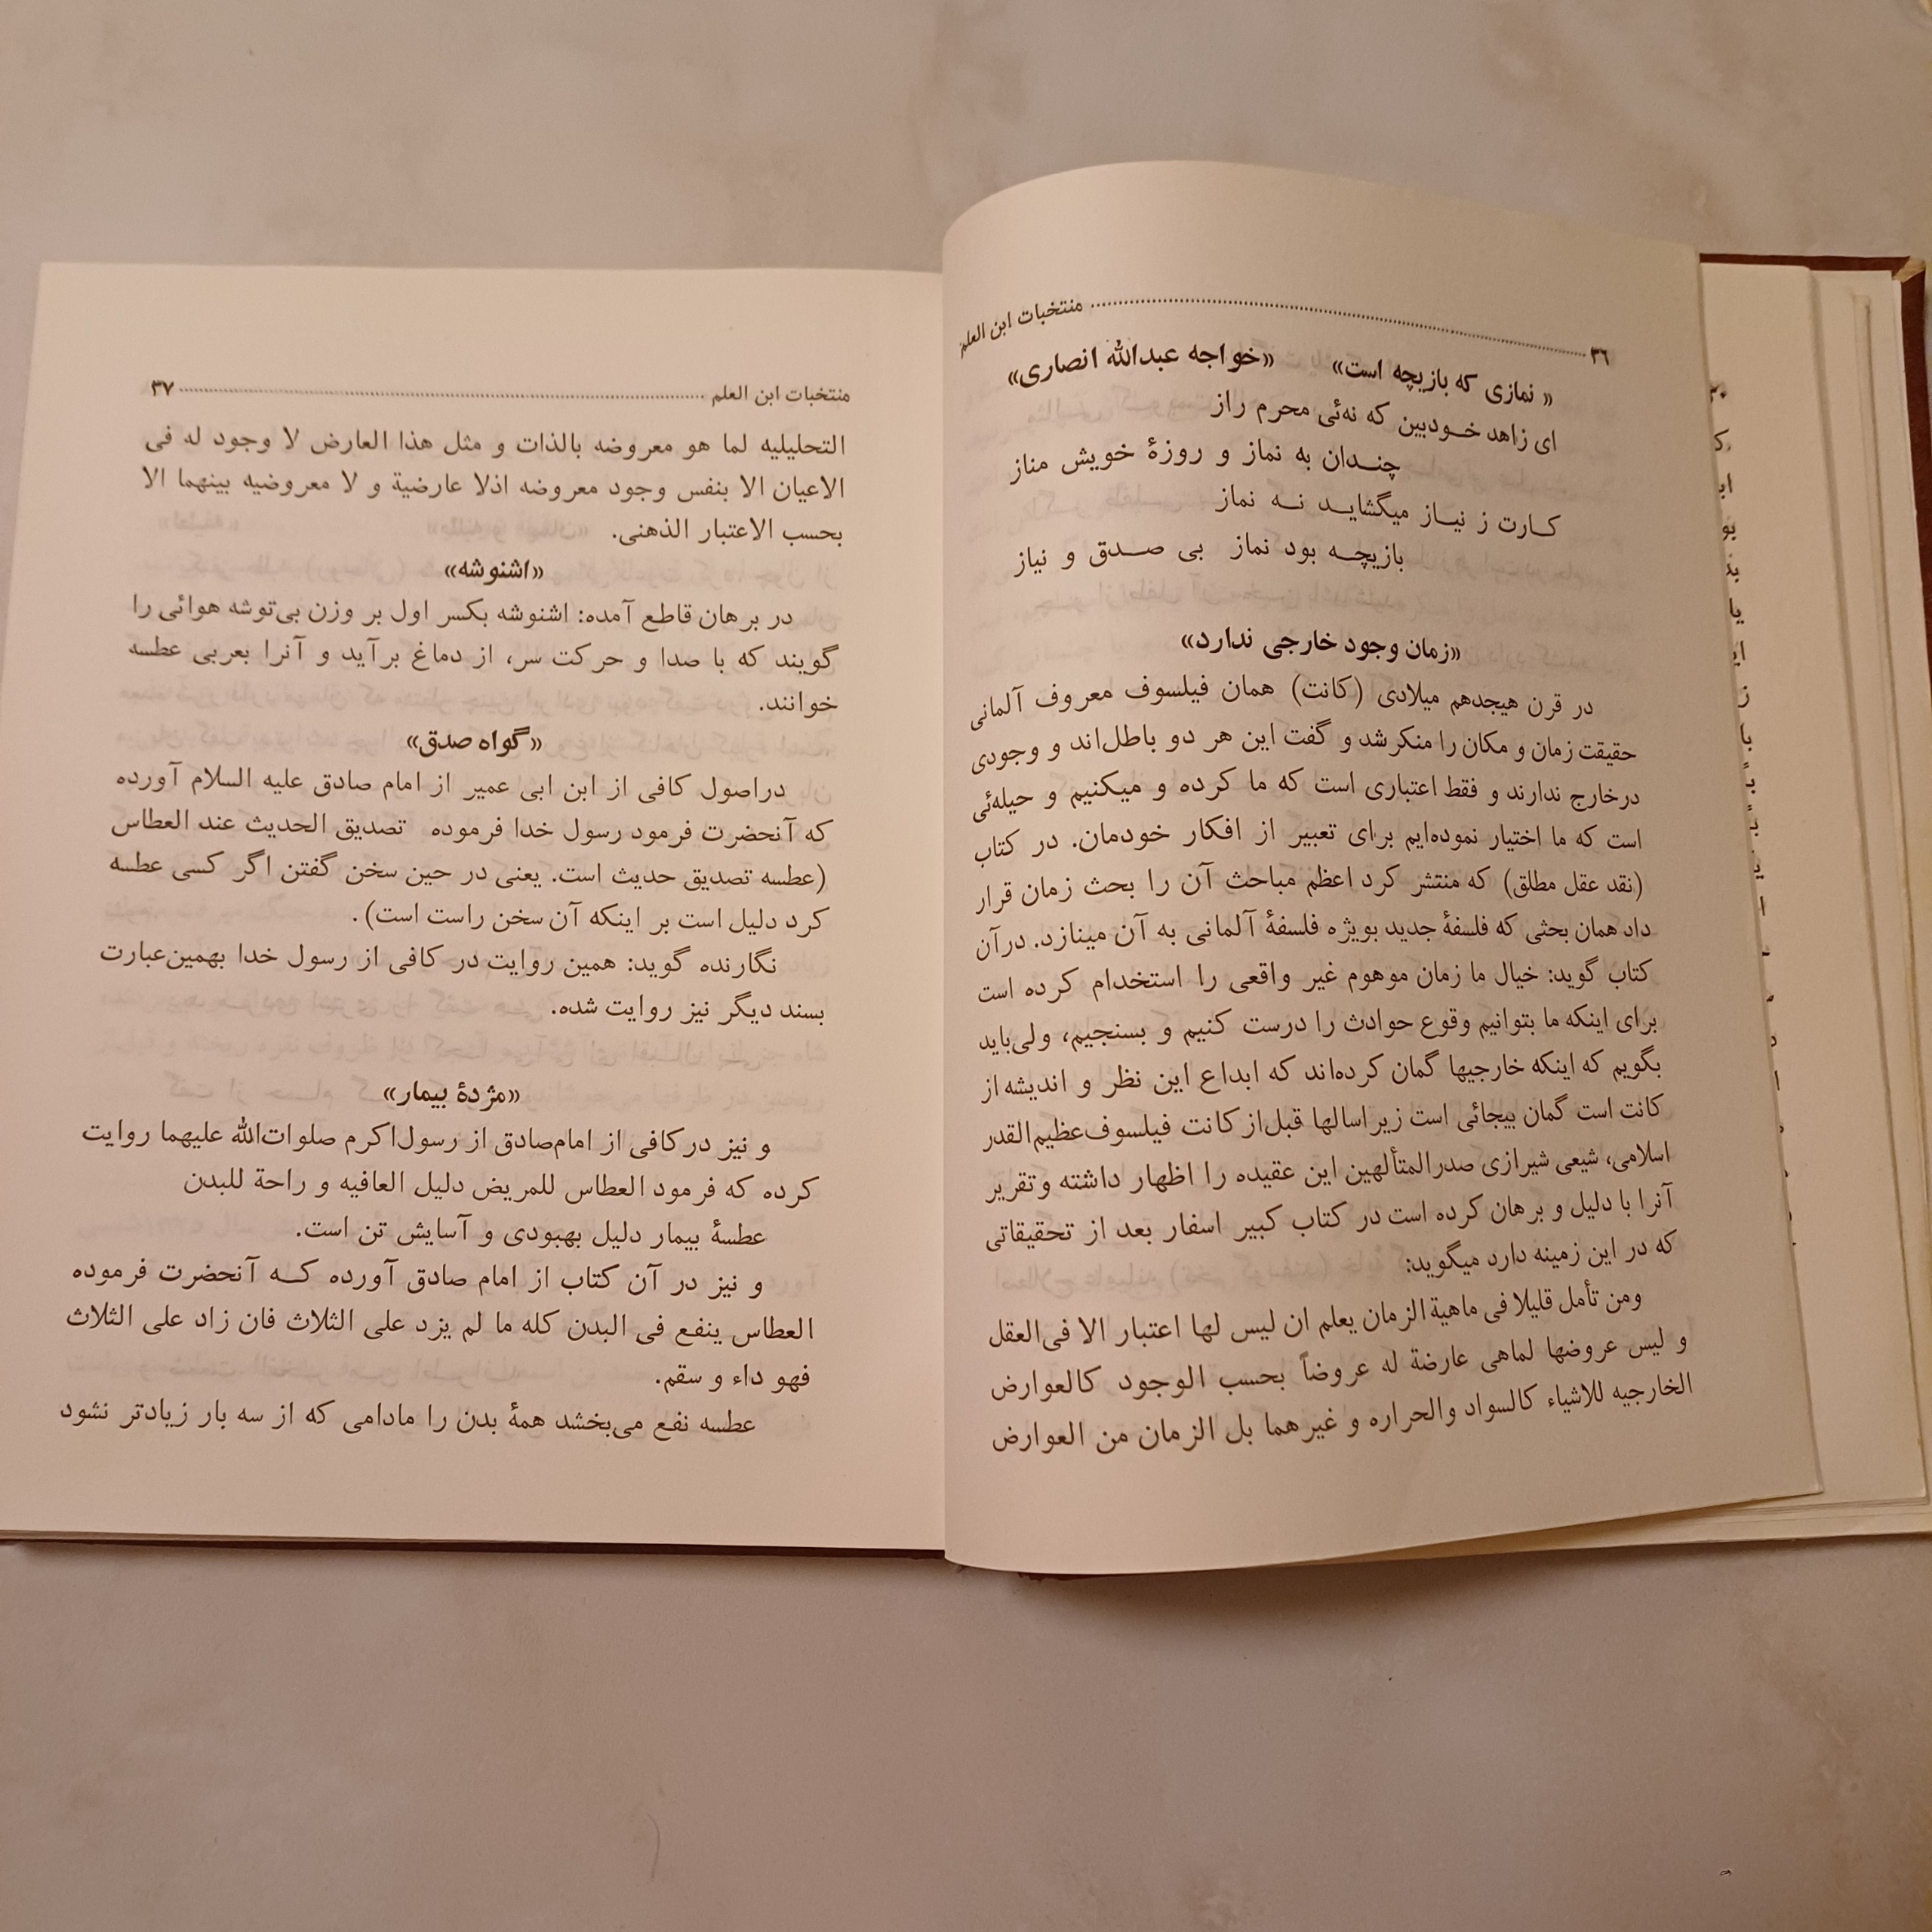 ۳۶ منتخبات ابن العلم
« نمازی که بازیچه است» «خواجه عبدالله انصاری»
ای زاهد خـودبین که نه‌ئی محرم راز
چنـدان به نماز و روزهٔ خویش مناز
کـارت ز نیـاز میگشایـد نـه نماز
بازیچـه بود نماز بی صـدق و نیاز
«زمان وجود خارجی ندارد»
در قرن هیجدهم میلادی (کانت) همان فیلسوف معروف آلمانی
حقیقت زمان و مکان را منکر شد و گفت این هر دو باطل‌اند و وجودی
درخارج ندارند و فقط اعتباری است که ما کرده و میکنیم و حیله‌ئی
است که ما اختیار نموده‌ایم برای تعبیر از افکار خودمان. در کتاب
(نقد عقل مطلق) که منتشر کرد اعظم مباحث آن را بحث زمان قرار
داد همان بحثی که فلسفهٔ جدید بویژه فلسفهٔ آلمانی به آن مینازد. درآن
کتاب گوید: خیال ما زمان موهوم غیر واقعی را استخدام کرده است
برای اینکه ما بتوانیم وقوع حوادث را درست کنیم و بسنجیم، ولی‌باید
بگویم که اینکه خارجیها گمان کرده‌اند که ابداع این نظر و اندیشه از
کانت است گمان بیجائی است زیرا سالها قبل‌از کانت فیلسوف‌عظیم‌القدر
اسلامی، شیعی شیرازی صدرالمتألهین این عقیده را اظهار داشته وتقریر
آنرا با دلیل و برهان کرده است در کتاب کبیر اسفار بعد از تحقیقاتی
که در این زمینه دارد میگوید:
ومن تأمل قلیلا فی ماهیة الزمان یعلم ان لیس لها اعتبار الا فی‌العقل
و لیس عروضها لماهی عارضة له عروضاً بحسب الوجود کالعوارض
الخارجیه للاشیاء کالسواد والحراره و غیرهما بل الزمان من العوارض
منتخبات ابن العلم ۳۷
التحلیلیه لما هو معروضه بالذات و مثل هذا العارض لا وجود له فی
الاعیان الا بنفس وجود معروضه اذلا عارضیة و لا معروضیه بینهما الا
بحسب الاعتبار الذهنی.
«اشنوشه»
در برهان قاطع آمده: اشنوشه بکسر اول بر وزن بی‌توشه هوائی را
گویند که با صدا و حرکت سر، از دماغ برآید و آنرا بعربی عطسه
خوانند.
«گواه صدق»
دراصول کافی از ابن ابی عمیر از امام صادق علیه السلام آورده
که آنحضرت فرمود رسول خدا فرموده تصدیق الحدیث عند العطاس
(عطسه تصدیق حدیث است. یعنی در حین سخن گفتن اگر کسی عطسه
کرد دلیل است بر اینکه آن سخن راست است).
نگارنده گوید: همین روایت در کافی از رسول خدا بهمین‌عبارت
بسند دیگر نیز روایت شده.
«مژدهٔ بیمار»
و نیز درکافی از امام‌صادق از رسول‌اکرم صلوات‌الله علیهما روایت
کرده که فرمود العطاس للمریض دلیل العافیه و راحة للبدن
عطسهٔ بیمار دلیل بهبودی و آسایش تن است.
و نیز در آن کتاب از امام صادق آورده کـه آنحضرت فرموده
العطاس ینفع فی البدن کله ما لم یزد علی الثلاث فان زاد علی الثلاث
فهو داء و سقم.
عطسه نفع می‌بخشد همهٔ بدن را مادامی که از سه بار زیادتر نشود